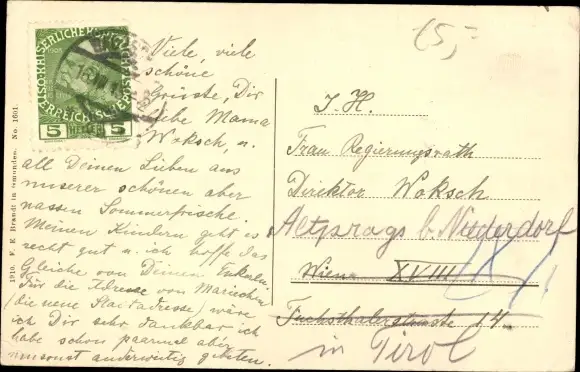 5,-
KAISERLICHE KÖNIGL
ÖSTERREICHISCHE POST
5 HELLER 5
Viele, viele
schöne
Grüsse, Dir
liebe Mama
Woksch, u.
all Deinen Lieben aus
unserer schönen aber
nassen Sommerfrische.
Meinen Kindern geht es
recht gut u. ich hoffe das
Gleiche von Deinen Enkerln.
Für die Adresse von Mariechen
(die neue Stadtadresse) wäre
ich Dir sehr dankbar ich
habe schon paarmal aber
umsonst anderwärtig gebeten.
1910. F. E. Brandt in Gmunden. No. 1601.
I. H.
Frau Regierungsrath
Direktor Woksch
Altprags b. Niederdorf
Wien XVIII
Fuchsthalerstrasse 14.
in Tirol